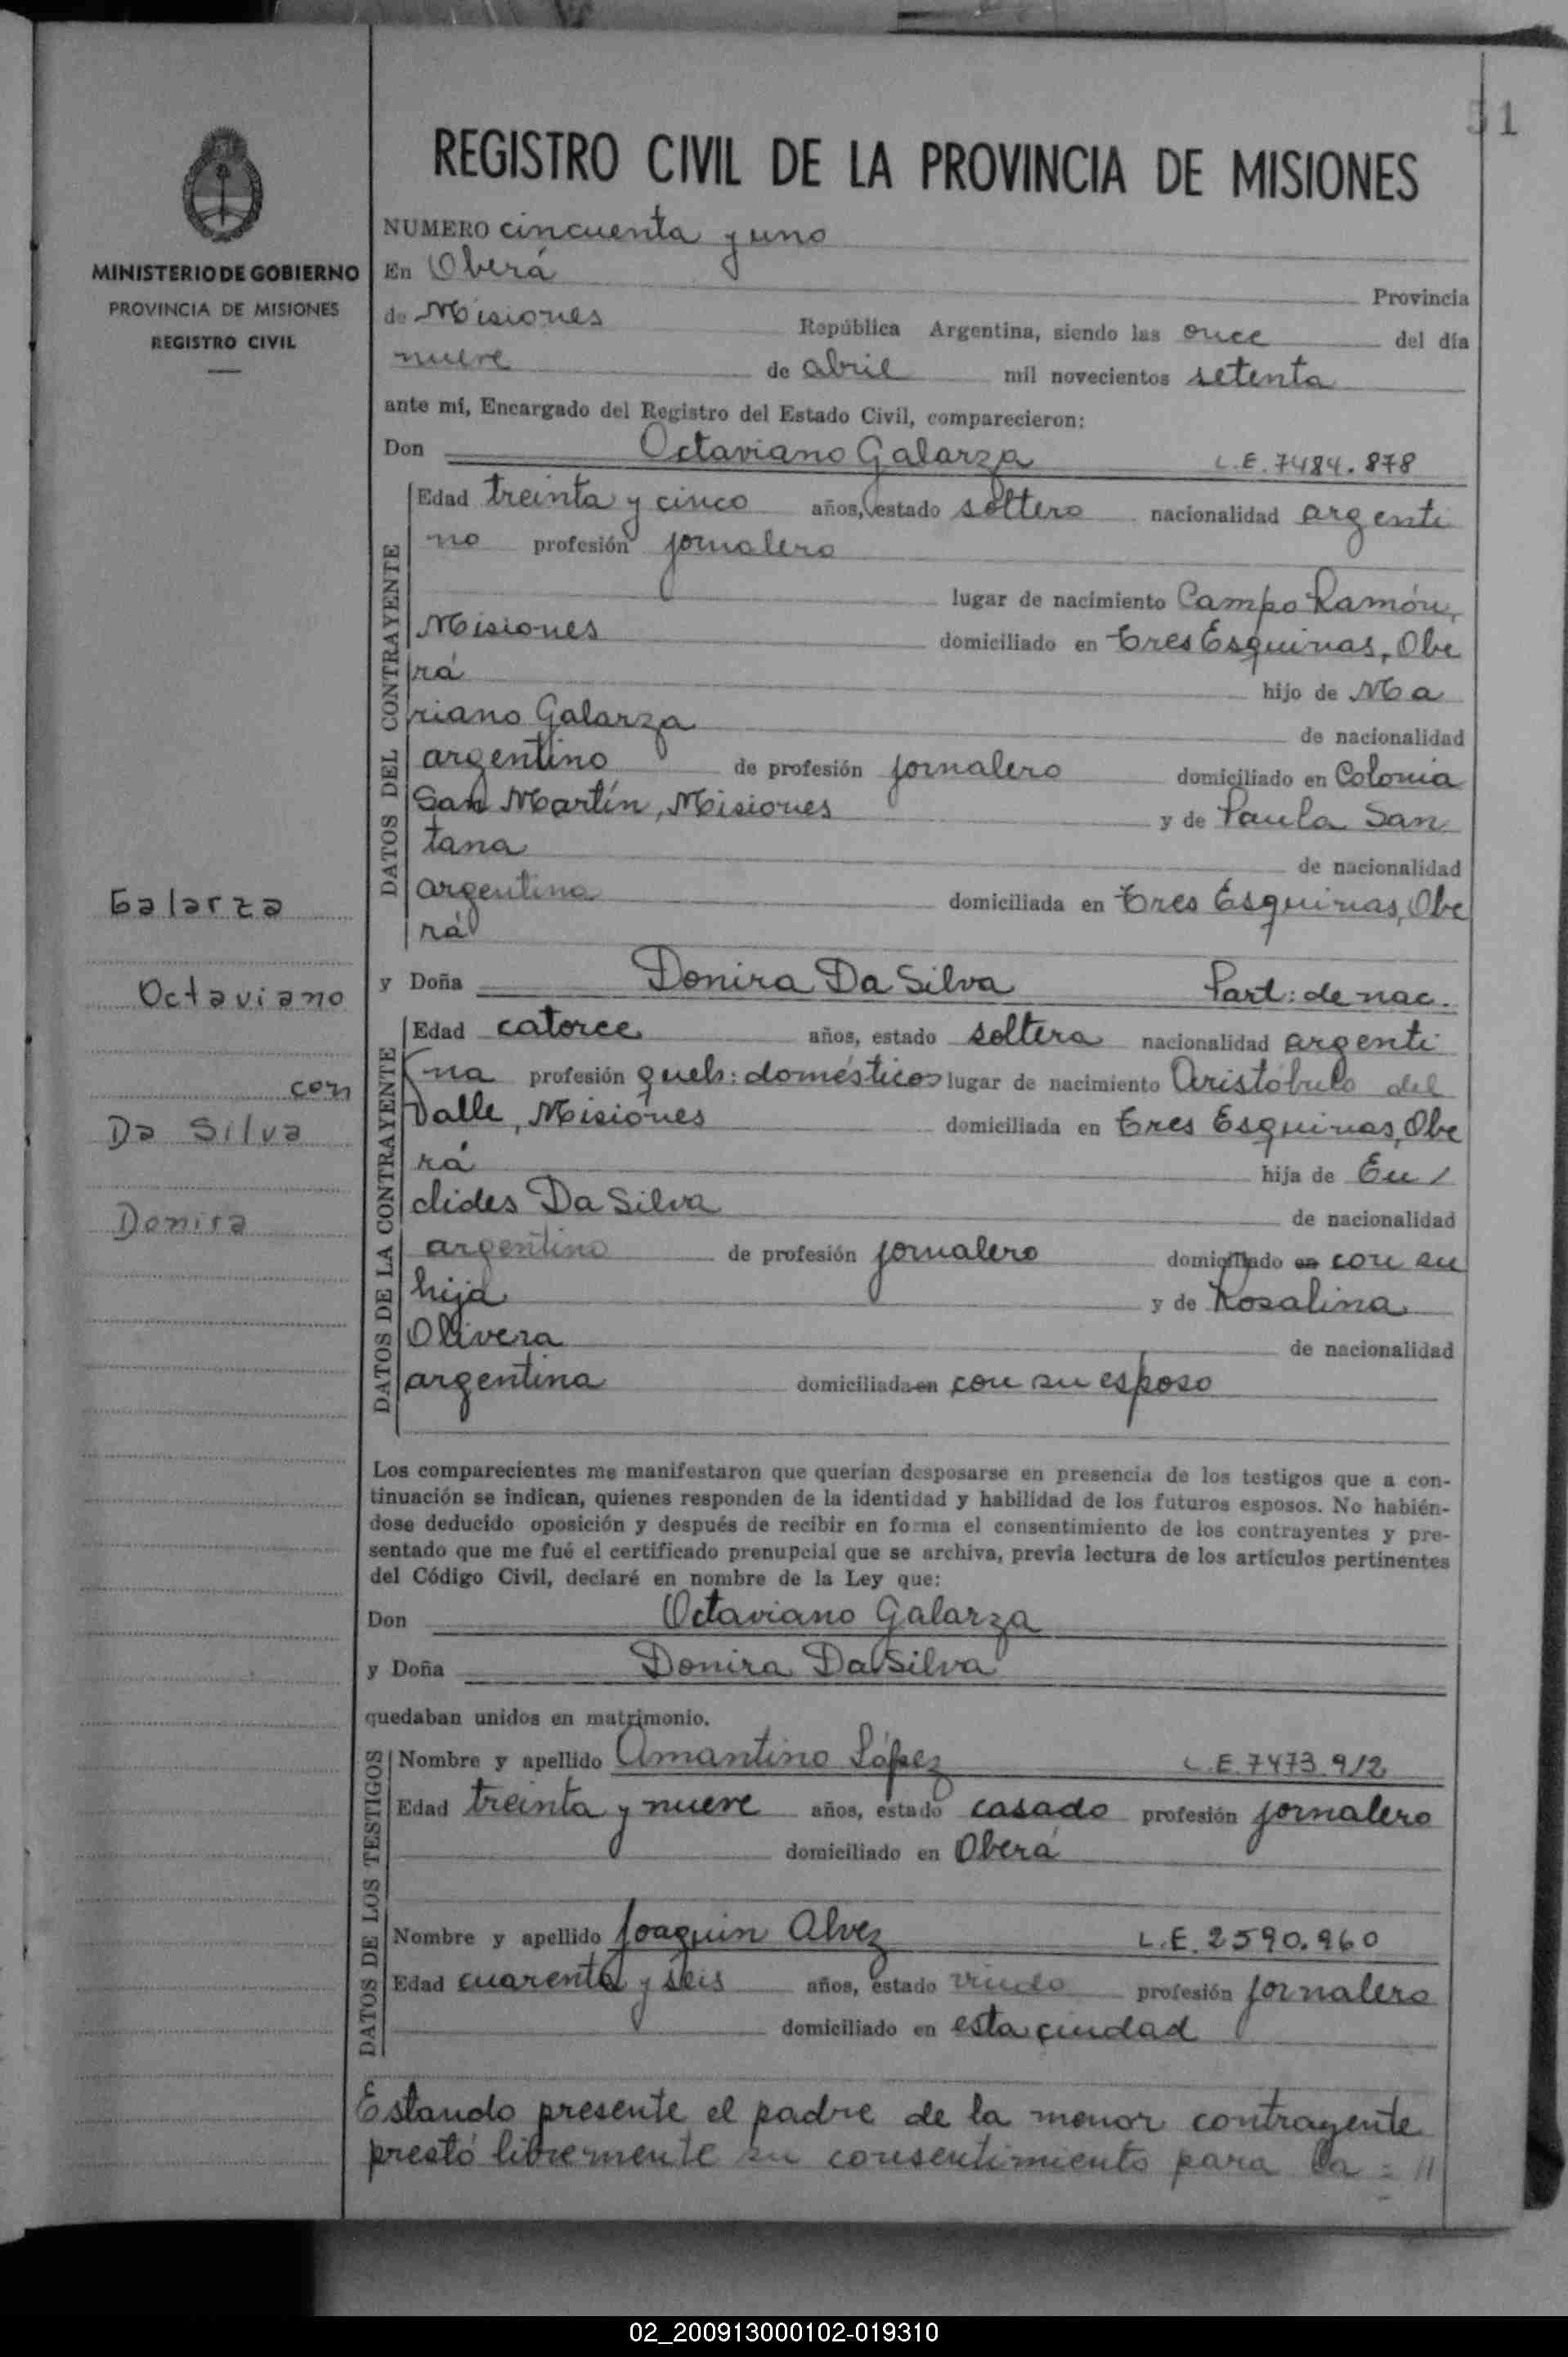 51
REGISTRO CIVIL DE LA PROVINCIA DE MISIONES
MINISTERIO DE GOBIERNO
PROVINCIA DE MISIONES
REGISTRO CIVIL
Galarza
Octaviano
con
Da Silva
Donira
NUMERO cincuenta y uno
En Oberá Provincia
de Misiones República Argentina, siendo las once del día
nueve de abril mil novecientos setenta
ante mí, Encargado del Registro del Estado Civil, comparecieron:
Don Octaviano Galarza L.E. 7484.878
DATOS DEL CONTRAYENTE
Edad treinta y cinco años, estado soltero nacionalidad argenti
no profesión jornalero
lugar de nacimiento Campo Ramón,
Misiones domiciliado en Tres Esquinas, Obe
rá hijo de Ma
riano Galarza de nacionalidad
argentino de profesión jornalero domiciliado en Colonia
San Martín, Misiones y de Paula San
tana de nacionalidad
argentina domiciliada en Tres Esquinas, Obe
rá
y Doña Donira Da Silva Part: de nac.
DATOS DE LA CONTRAYENTE
Edad catorce años, estado soltera nacionalidad argenti
na profesión queh: domésticos lugar de nacimiento Aristóbulo del
Valle, Misiones domiciliada en Tres Esquinas, Obe
rá hija de Eu /
clides Da Silva de nacionalidad
argentino de profesión jornalero domiciliado en con su
hija y de Rosalina
Olivera de nacionalidad
argentina domiciliada en con su esposo
Los comparecientes me manifestaron que querían desposarse en presencia de los testigos que a con-
tinuación se indican, quienes responden de la identidad y habilidad de los futuros esposos. No habién-
dose deducido oposición y después de recibir en forma el consentimiento de los contrayentes y pre-
sentado que me fué el certificado prenupcial que se archiva, previa lectura de los artículos pertinentes
del Código Civil, declaré en nombre de la Ley que:
Don Octaviano Galarza
y Doña Donira Da Silva
quedaban unidos en matrimonio.
DATOS DE LOS TESTIGOS
Nombre y apellido Amantino López L.E. 7473.912
Edad treinta y nueve años, estado casado profesión jornalero
domiciliado en Oberá
Nombre y apellido Joaquin Alvez L.E. 2590.960
Edad cuarenta y seis años, estado viudo profesión jornalero
domiciliado en esta ciudad
Estando presente el padre de la menor contrayente
prestó libremente su consentimiento para la = //
02_200913000102-019310